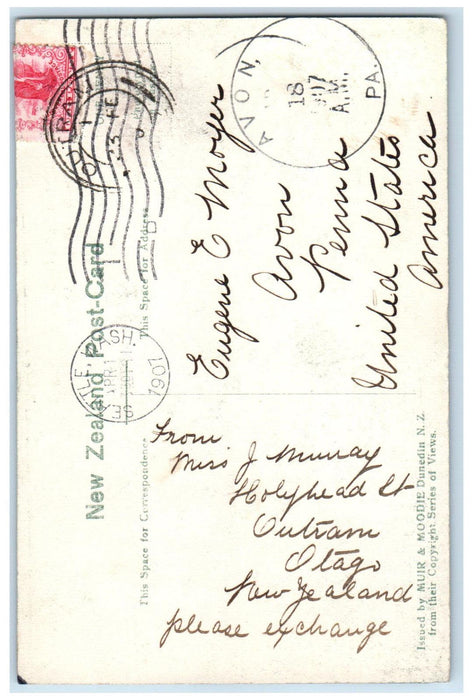 New Zealand Post-Card
This Space for Correspondence
This Space for Address
AVON,
PA.
18
1907
A.M.
SEATTLE WASH.
APR 1
1907
23 FE
Eugene E Moyer
Avon
Penna
United States
America
From
Miss J Murray
Holyhead St
Outram
Otago
New Zealand
please exchange
Issued by MUIR & MOODIE Dunedin N. Z.
from their Copyright Series of Views.